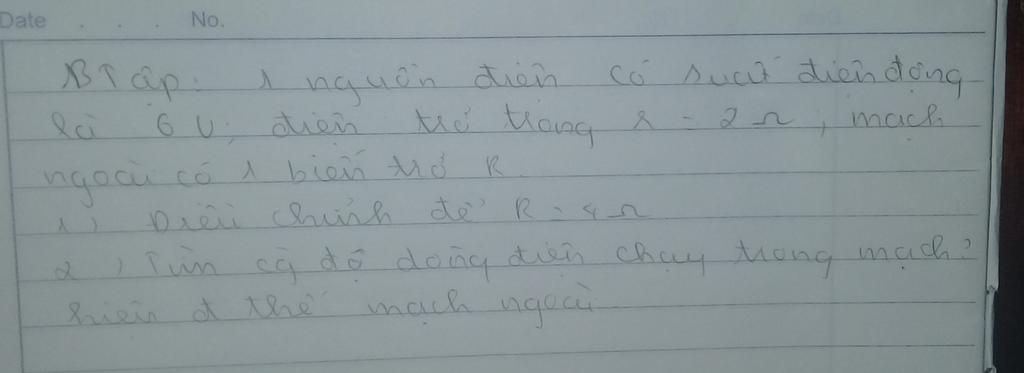 Date . . . No.
BT ập: 1 nguồn điện có suất điện động
là 6 V, điện trở trong r = 2 Ω, mạch
ngoài có 1 biến trở R
1, Điều chỉnh để R = 4 Ω
2, Tìm cg độ dòng điện chạy trong mạch?
hiệu đ thế mạch ngoài